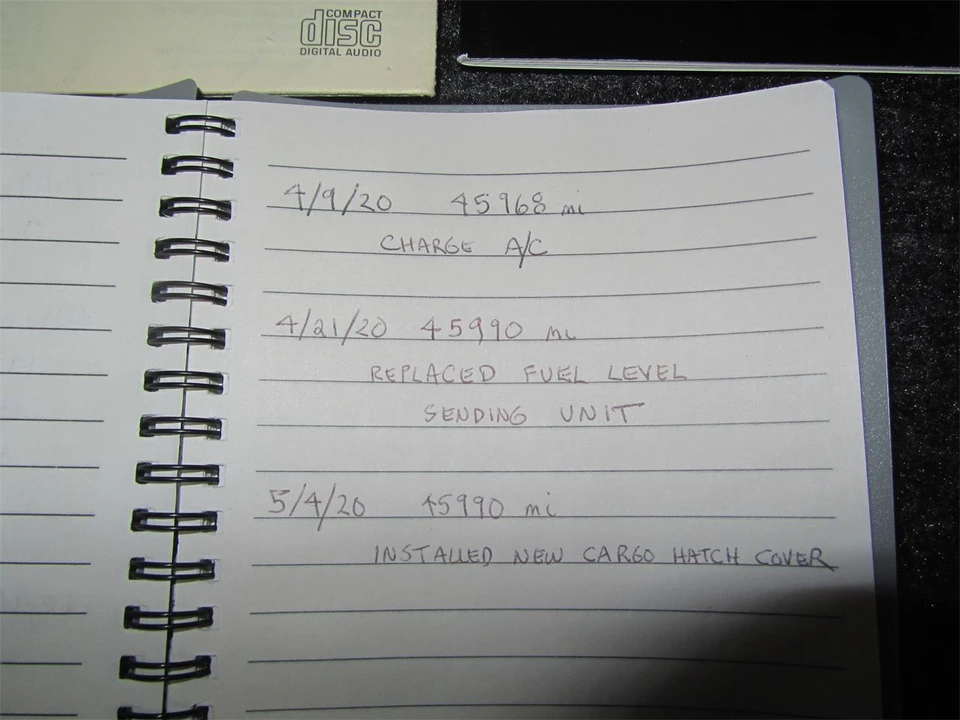 COMPACT
disc
DIGITAL AUDIO
4/9/20 45968 mi
CHARGE A/C
4/21/20 45990 mi
REPLACED FUEL LEVEL
SENDING UNIT
5/4/20 45990 mi
INSTALLED NEW CARGO HATCH COVER